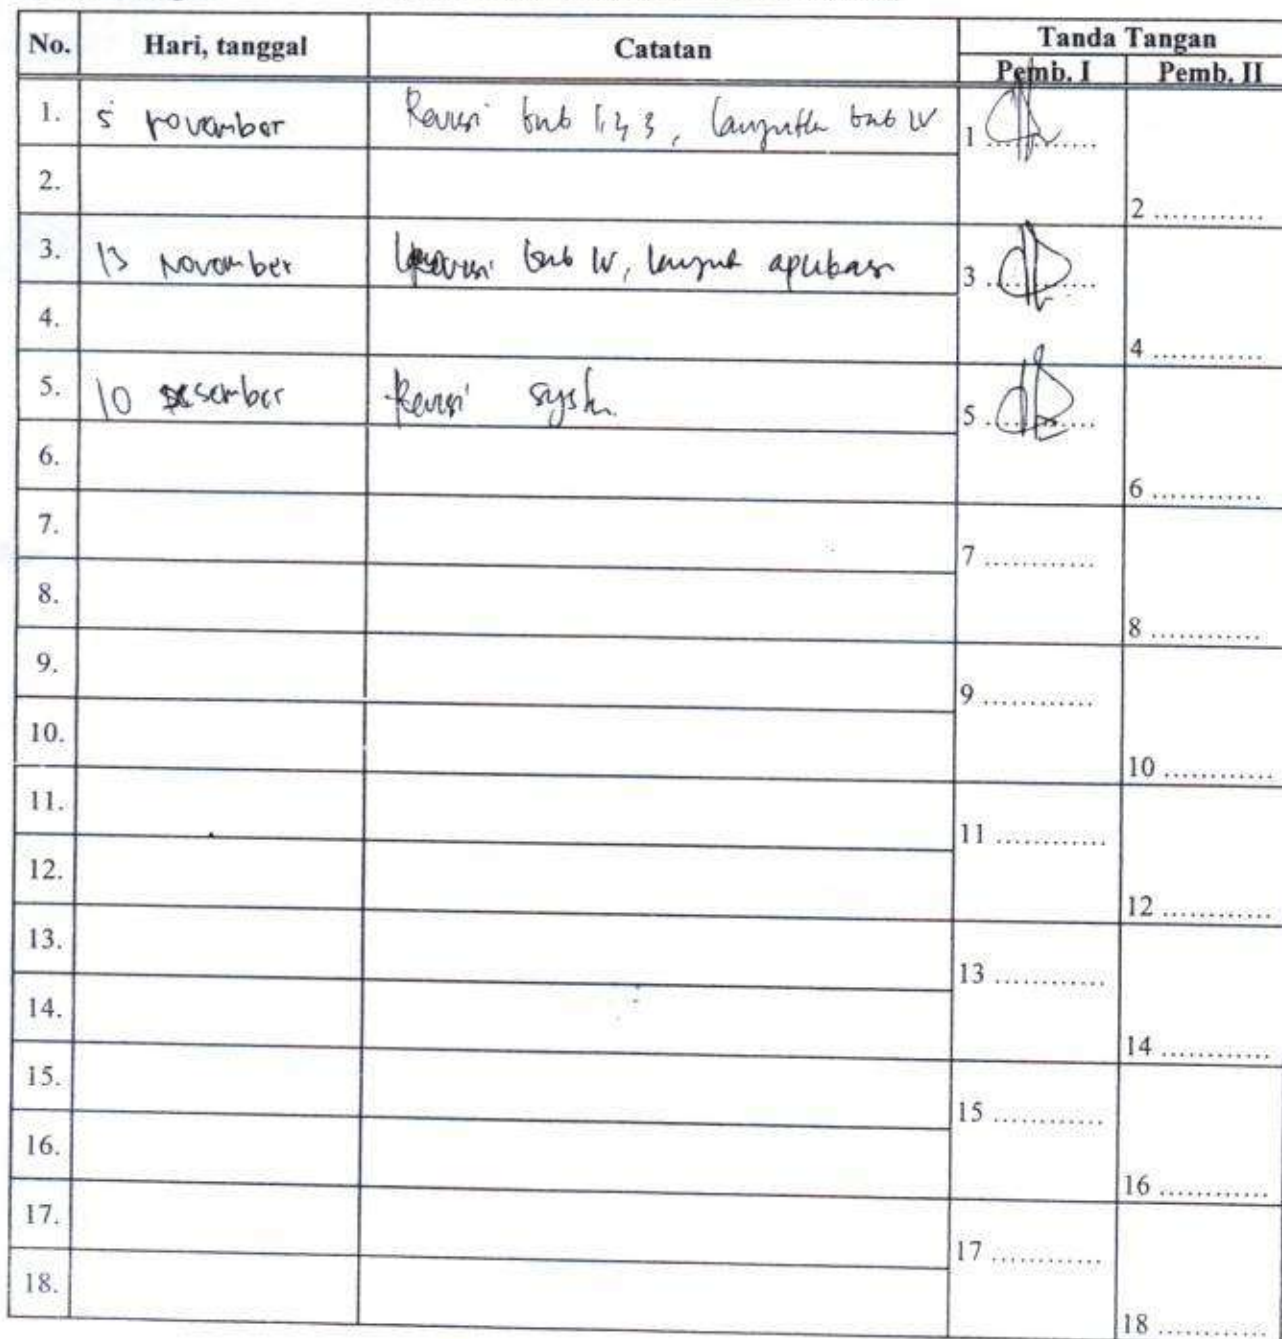 No. Hari, tanggal Catatan Tanda Tangan
Pemb. I Pemb. II
1. 5 november Revisi bab 1,2,3, lanjutkan bab IV 1 ............
2. 2 ............
3. 13 November Revisi bab IV, lanjut aplikasi 3 ............
4. 4 ............
5. 10 desember Revisi 5 ............
6. 6 ............
7. 7 ............
8. 8 ............
9. 9 ............
10. 10 ............
11. 11 ............
12. 12 ............
13. 13 ............
14. 14 ............
15. 15 ............
16. 16 ............
17. 17 ............
18. 18 ............